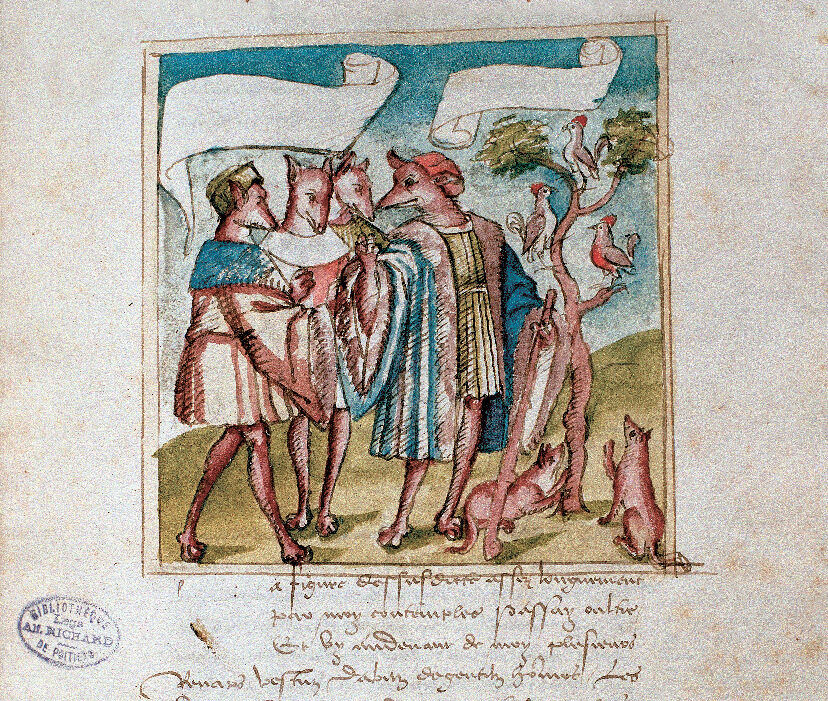 a figure dessusdicte assez longuement
par moy contemplee Passay oultre
Et vy audevant de moy plusieurs
Renars vestuz dabitz de gentilz hommes Les
BIBLIOTHÈQUE
Legs
A. RICHARD
DE POITIERS